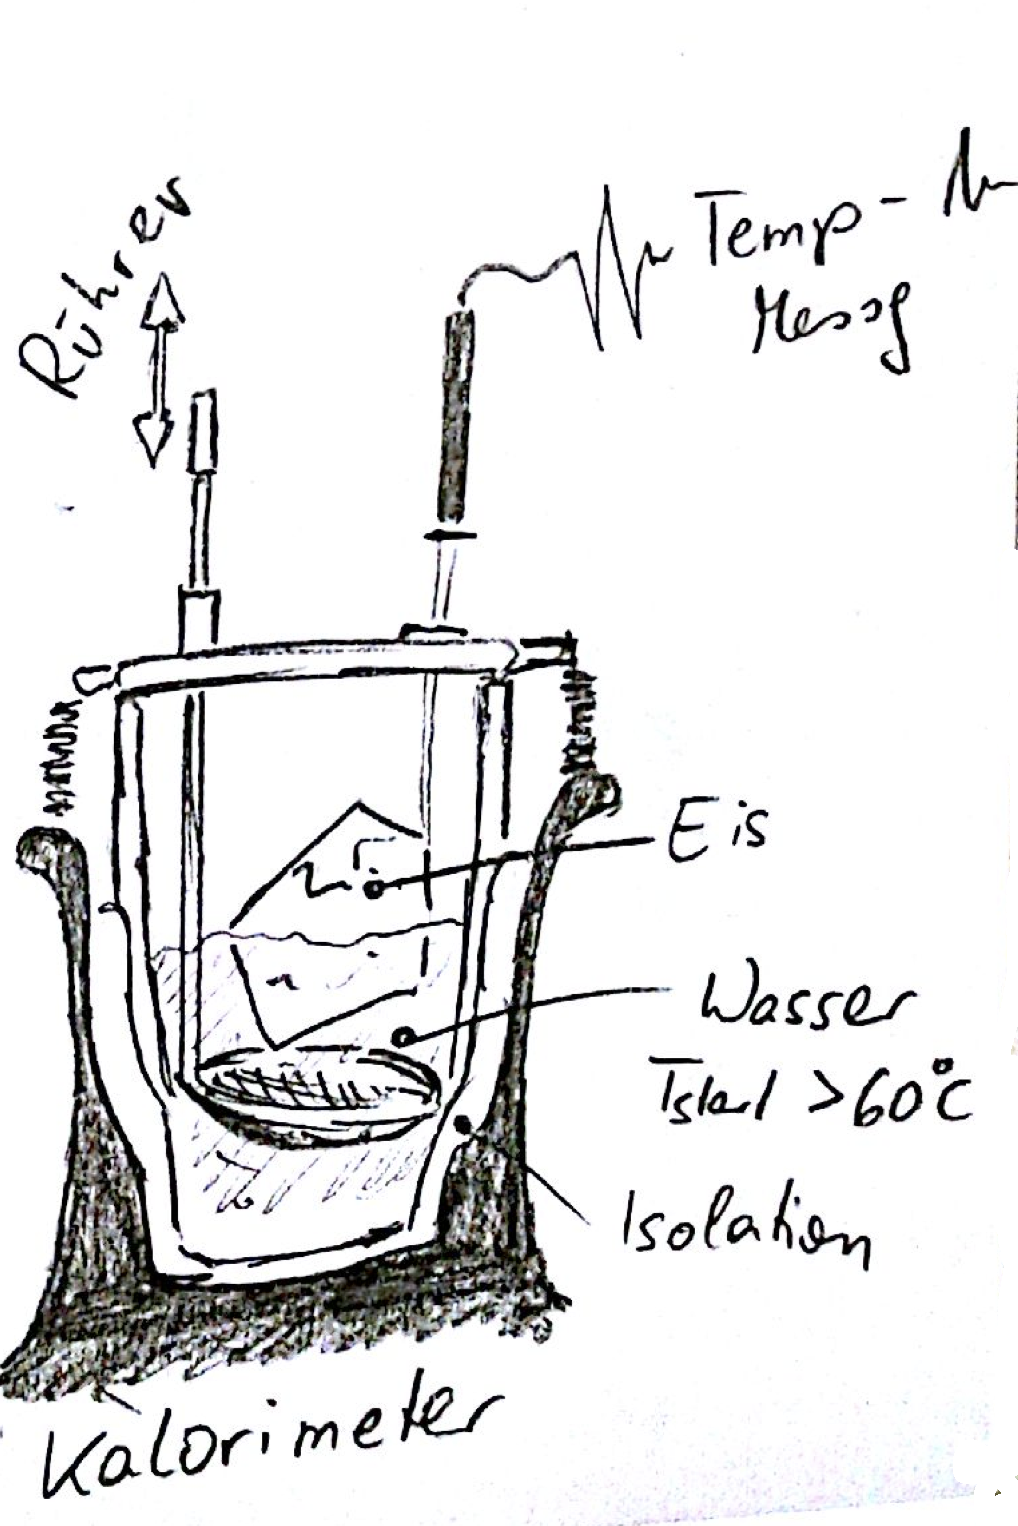 Rührer
Temp-
Messg
Eis
Wasser
TStart >60°C
Isolation
Kalorimeter